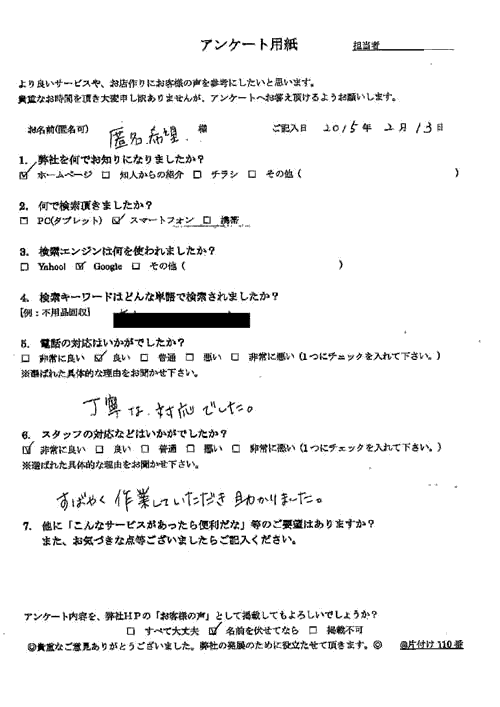 アンケート用紙
担当者
より良いサービスや、お店作りにお客様の声を参考にしたいと思います。
貴重なお時間を頂き大変申し訳ありませんが、アンケートへお答え頂けるようお願いします。
お名前(匿名可) 匿名希望. 様 ご記入日 2015年 2月 13日
1. 弊社を何でお知りになりましたか?
☑ ホームページ □ 知人からの紹介 □ チラシ □ その他 ( )
2. 何で検索頂きましたか?
□ PC(タブレット) ☑ スマートフォン □ 携帯
3. 検索エンジンは何を使われましたか?
□ Yahoo! ☑ Google □ その他 ( )
4. 検索キーワードはどんな単語で検索されましたか?
[例:不用品回収]
5. 電話の対応はいかがでしたか?
□ 非常に良い ☑ 良い □ 普通 □ 悪い □ 非常に悪い (1つにチェックを入れて下さい。)
※選ばれた具体的な理由をお聞かせ下さい。
丁寧な対応でした。
6. スタッフの対応などはいかがでしたか?
☑ 非常に良い □ 良い □ 普通 □ 悪い □ 非常に悪い (1つにチェックを入れて下さい。)
※選ばれた具体的な理由をお聞かせ下さい。
すばやく作業していただき助かりました。
7. 他に「こんなサービスがあったら便利だな」等のご要望はありますか?
また、お気づきな点等ございましたらご記入ください。
アンケート内容を、弊社HPの「お客様の声」として掲載してもよろしいでしょうか?
□ すべて大丈夫 ☑ 名前を伏せてなら □ 掲載不可
◎貴重なご意見ありがとうございました。弊社の発展のために役立たせて頂きます。◎ @片付け110番